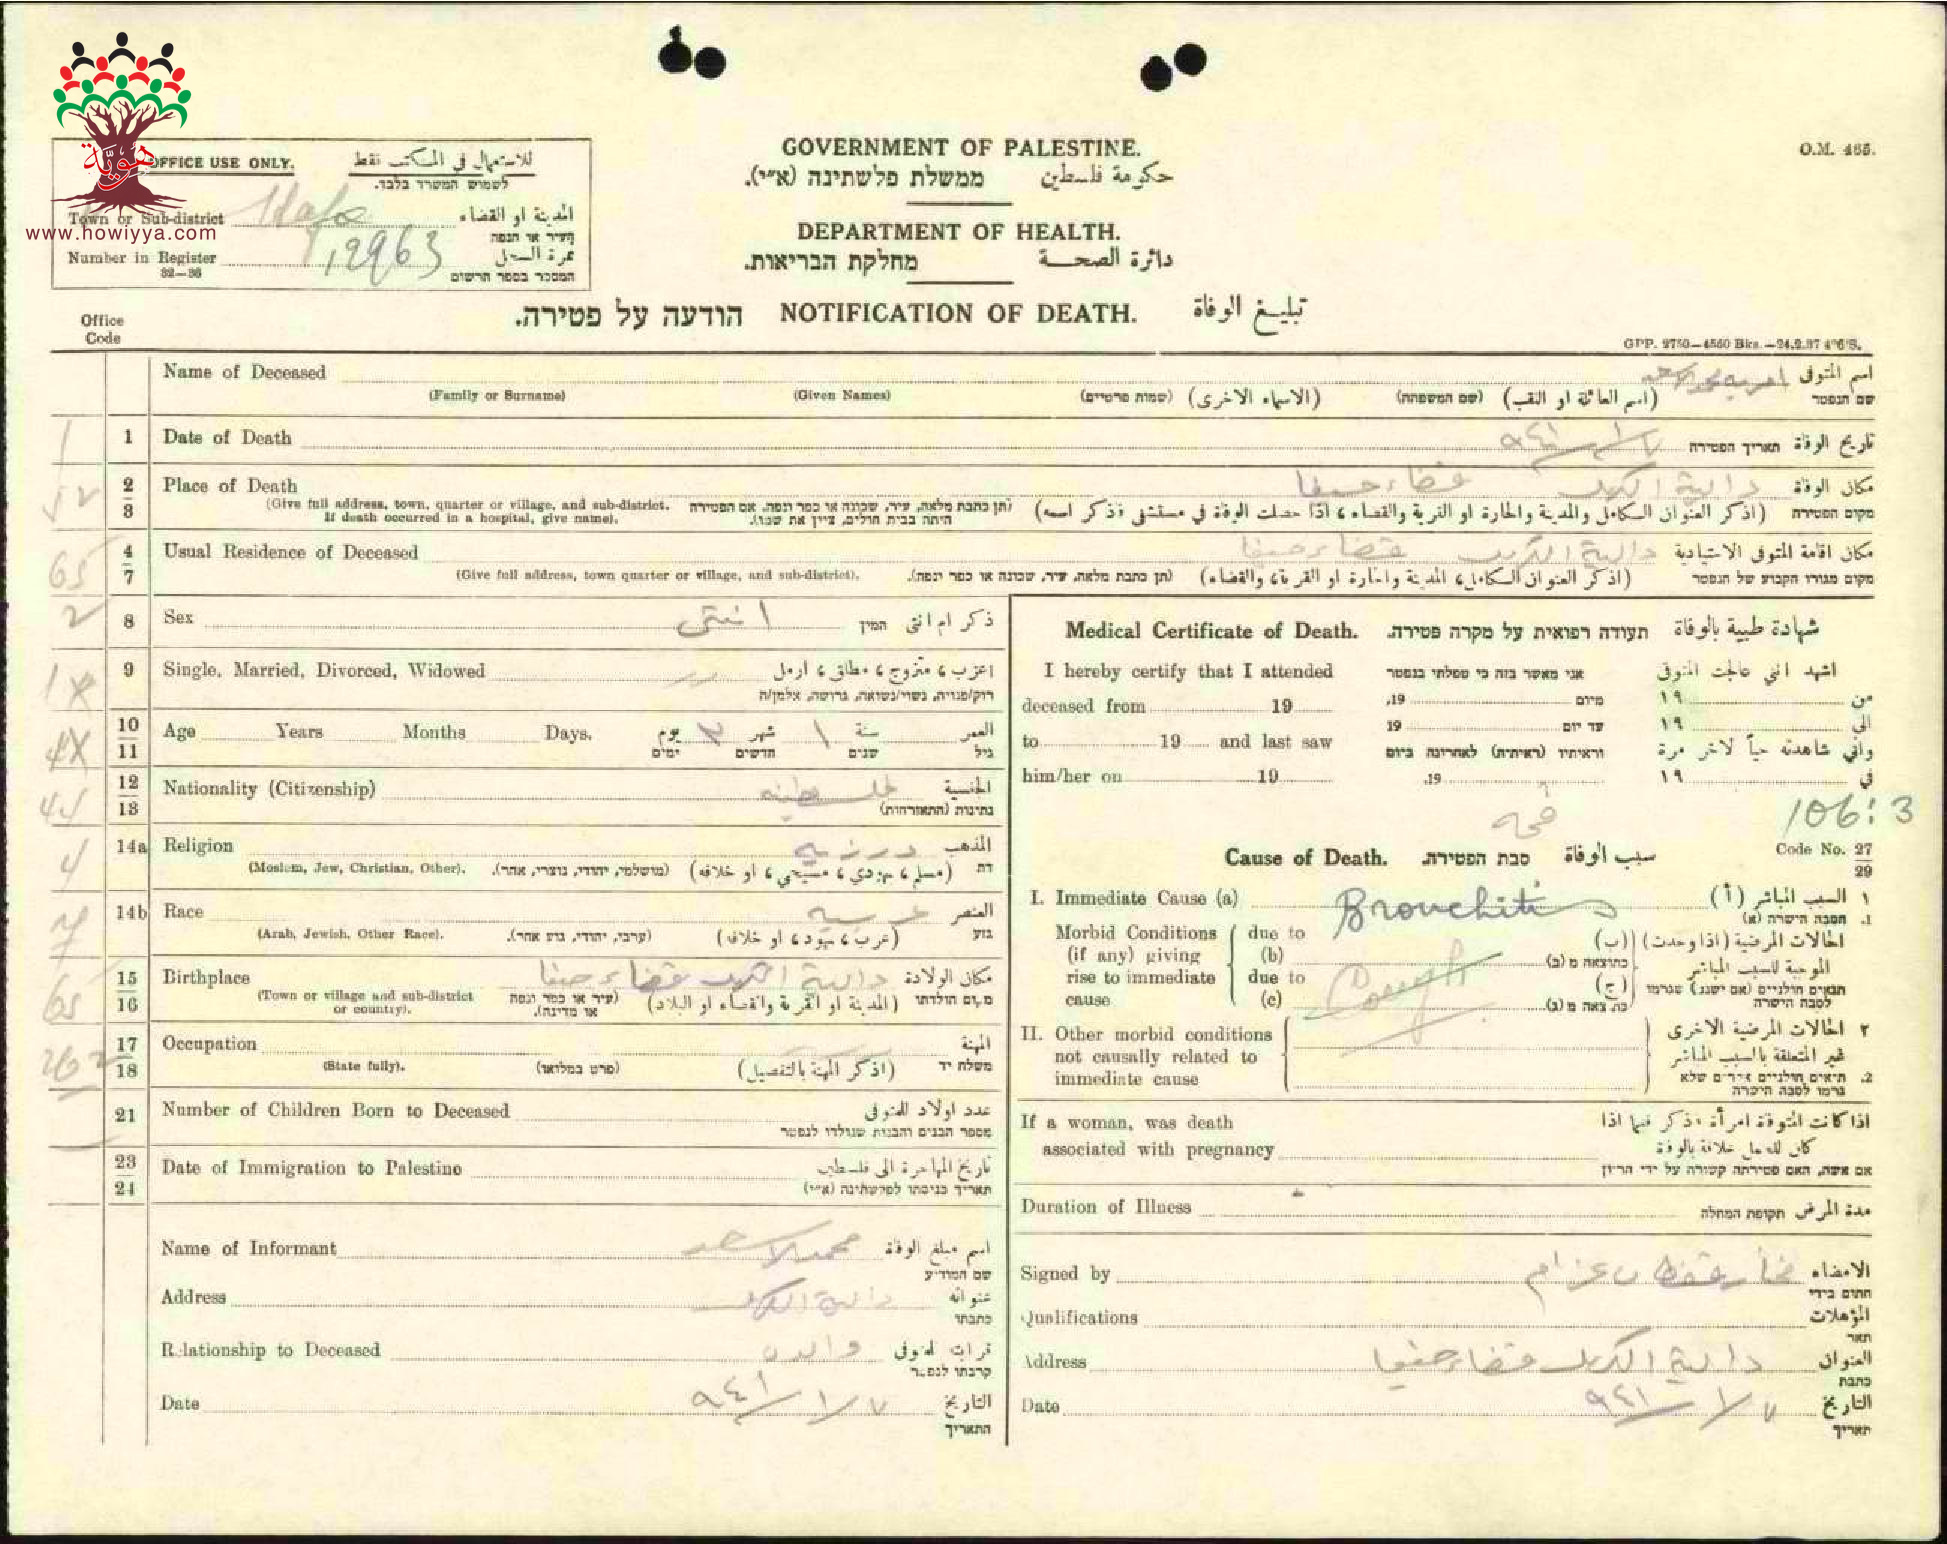 هويّة
www.howiyya.com
OFFICE USE ONLY. للاستعمال في المكتب فقط
לשמוש המשרד בלבד.
Town or Sub-district Haifa المدينة او القضاء
העיר או הנפה
Number in Register 12963 نمرة السجل
32—36 המספר בספר הרשום
GOVERNMENT OF PALESTINE.
ממשלת פלשתינה (א״י). حكومة فلسطين
DEPARTMENT OF HEALTH.
מחלקת הבריאות. دائرة الصحة
הודעה על פטירה. NOTIFICATION OF DEATH. تبليغ الوفاة
O.M. 465.
Office Code
GPP. 2750—4560 Bks.—24.2.37 4"6"S.
Name of Deceased اسم المتوفى
(Family or Surname) (Given Names) (שמות פרטיים) (الاسماء الاخرى) (שם המשפחה) (اسم العائلة او اللقب) שם הנפטר
1 Date of Death ٧/١/٩٤١ תאריך הפטירה تاريخ الوفاة
2 Place of Death دالية الكرمل قضاء حيفا مكان الوفاة
3 (Give full address, town, quarter or village, and sub-district. If death occurred in a hospital, give name). (תן כתבת מלאה, עיר, שכונה או כפר ונפה. אם הפטירה היתה בבית חולים, ציין את שמו). (اذكر العنوان الكامل والمدينة والحارة او القرية والقضاء ، اذا حصلت الوفاة في مستشفى فذكر اسمه) מקום הפטירה
4 Usual Residence of Deceased دالية الكرمل قضاء حيفا مكان اقامة المتوفى الاعتيادية
7 (Give full address, town quarter or village, and sub-district). (תן כתבת מלאה, עיר, שכונה או כפר ונפה). (اذكر العنوان الكامل، المدينة والحارة او القرية، والقضاء) מקום מגורו הקבוע של הנפטר
8 Sex انثى המין ذكر ام انثى
9 Single, Married, Divorced, Widowed اعزب ، متزوج ، مطلق ، ارمل
רוק/פנויה, נשוי/נשואה, גרוש/ה, אלמן/ה
10 Age Years Months Days. يوم شهر ١ سنة العمر
11 ימים חדשים שנים גיל
12 Nationality (Citizenship) فلسطينيه الجنسية
13 נתינות (התאזרחות)
14a Religion درزيه المذهب
(Moslem, Jew, Christian, Other). (מושלמי, יהודי, נוצרי, אחר). (مسلم ، يهودي ، مسيحي ، او خلافه) דת
14b Race عربيه العنصر
(Arab, Jewish, Other Race). (ערבי, יהודי, גזע אחר). (عرب ، يهود ، او خلافه) גזע
15 Birthplace دالية الكرمل قضاء حيفا مكان الولادة
16 (Town or village and sub-district or country). (עיר או כפר ונפה או מדינה). (المدينة او القرية والقضاء او البلاد) מקום הולדתו
17 Occupation المهنة
18 (State fully). (פרט במלואו) (اذكر المهنة بالتفصيل) משלח יד
21 Number of Children Born to Deceased عدد اولاد المتوفى
מספר הבנים והבנות שנולדו לנפטר
23 Date of Immigration to Palestine تاريخ المهاجرة الى فلسطين
24 תאריך כניסתו לפלשתינה (א״י)
Name of Informant محمد الاسعد اسم مبلغ الوفاة
שם המודיע
Address دالية الكرمل عنوانه
כתבתו
Relationship to Deceased والده قرابته للمتوفى
קרבתו לנפטר
Date ٧/١/٩٤١ التاريخ
התאריך
Medical Certificate of Death. תעודה רפואית על מקרה פטירה. شهادة طبية بالوفاة
I hereby certify that I attended אני מאשר בזה כי טפלתי בנפטר اشهد انني عالجت المتوفى
deceased from 19 ,19 מיום ١٩ من
to 19 and last saw 19 עד יום ١٩ الى
וראיתיו (ראיתיה) לאחרונה ביום وانني شاهدته حياً لآخر مرة
him/her on 19 .19 ١٩ في
106:3
Cause of Death. סבת הפטירה. سبب الوفاة Code No. 27 29
I. Immediate Cause (a) Bronchitis السبب المباشر (أ) ١
הסבה הישרה (א) .1
Morbid Conditions (if any) giving rise to immediate cause
due to (b) כתוצאה מ (ב) (ب) الحالات المرضية (اذا وجدت) الموجبة للسبب المباشر
due to (c) Cough כתוצאה מ (ג) (ج) תנאים חולניים (אם ישנם) שגרמו לסבה הישרה
II. Other morbid conditions not causally related to immediate cause ٢ الحالات المرضية الاخرى غير المتعلقة بالسبب المباشر
2. תנאים חולניים אחרים שלא גרמו לסבה הישרה
If a woman, was death associated with pregnancy اذا كانت المتوفاة امرأة فذكر فيما اذا كان للحمل علاقة بالوفاة
אם אשה, האם פטירתה קשורה על ידי הריון
Duration of Illness תקופת המחלה مدة المرض
Signed by عزام الامضاء
חתום בידי
Qualifications المؤهلات
תאר
Address دالية الكرمل قضاء حيفا العنوان
כתבת
Date ٧/١/٩٤١ التاريخ
תאריך